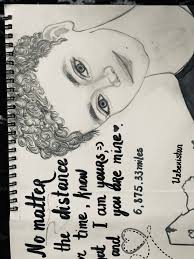 No matter
the distance
or time, know
that I am yours,:)
and you are mine♥.
6,875.33miles
Uzbekistan